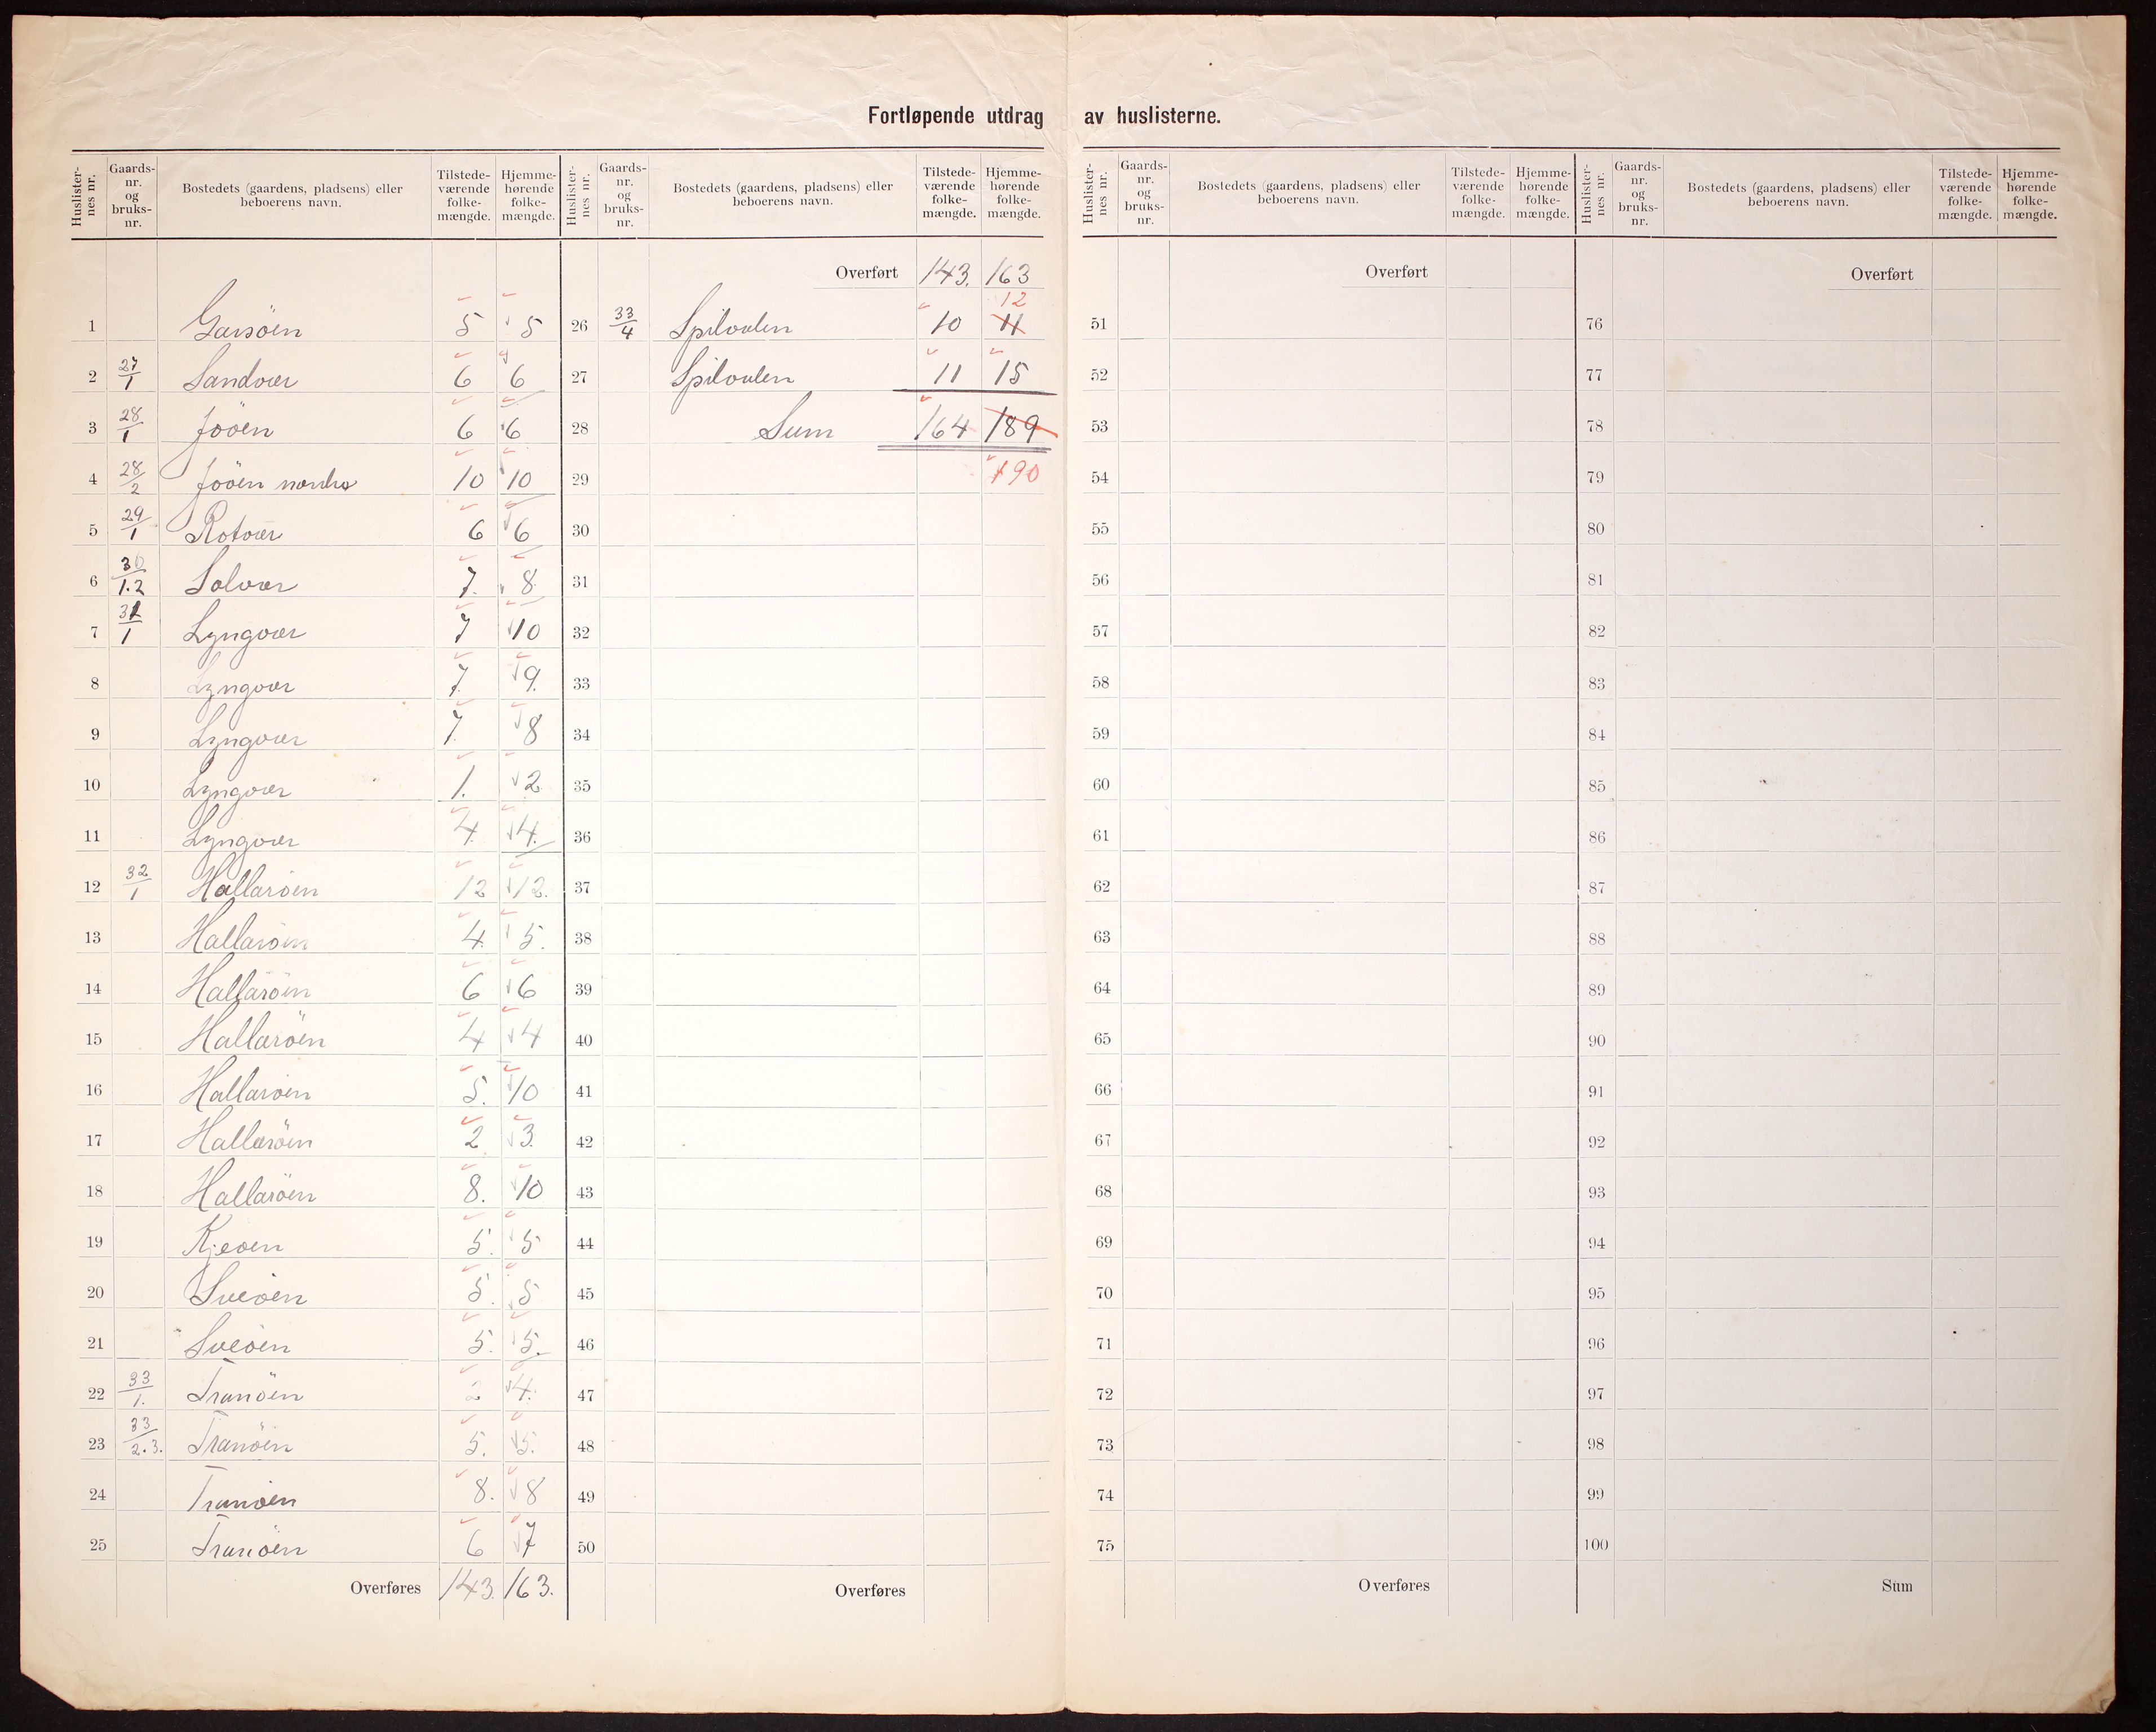 Fortløpende utdrag av huslisterne.
Huslister-nes nr. Gaards-nr. og bruks-nr. Bostedets (gaardens, pladsens) eller beboerens navn. Tilstede-værende folke-mængde. Hjemme-hørende folke-mængde.
1 Garsöen 5 5
2 27/1 Sandvær 6 6
3 28/1 Jööen 6 6
4 28/2 Jööen nordre 10 10
5 29/1 Rotvær 6 6
6 30/1.2 Solvær 7. 8.
7 31/1 Lyngvær 7 10
8 Lyngvær 7. 9.
9 Lyngvær 7. 8
10 Lyngvær 1. 2
11 Lyngvær 4. 4.
12 32/1 Hallaröen 12 12.
13 Hallaröen 4. 5.
14 Hallaröen 6 6
15 Hallaröen 4 4
16 Hallaröen 5. 10
17 Hallaröen 2 3.
18 Hallaröen 8. 10
19 Kjeöen 5. 5
20 Sveöen 5. 5
21 Sveöen 5. 5.
22 33/1. Tranöen 2 4.
23 33/2.3. Tranöen 5. 5.
24 Tranöen 8. 8
25 Tranöen 6 7
Overføres 143. 163.
Huslister-nes nr. Gaards-nr. og bruks-nr. Bostedets (gaardens, pladsens) eller beboerens navn. Tilstede-værende folke-mængde. Hjemme-hørende folke-mængde.
Overført 143. 163
12
26 33/4 Spilvalen 10 11
27 Spilvalen 11 15
28 Sum 164 189
29 190
30
31
32
33
34
35
36
37
38
39
40
41
42
43
44
45
46
47
48
49
50
Overføres
Huslister-nes nr. Gaards-nr. og bruks-nr. Bostedets (gaardens, pladsens) eller beboerens navn. Tilstede-værende folke-mængde. Hjemme-hørende folke-mængde.
Overført
51
52
53
54
55
56
57
58
59
60
61
62
63
64
65
66
67
68
69
70
71
72
73
74
75
Overføres
Huslister-nes nr. Gaards-nr. og bruks-nr. Bostedets (gaardens, pladsens) eller beboerens navn. Tilstede-værende folke-mængde. Hjemme-hørende folke-mængde.
Overført
76
77
78
79
80
81
82
83
84
85
86
87
88
89
90
91
92
93
94
95
96
97
98
99
100
Sum